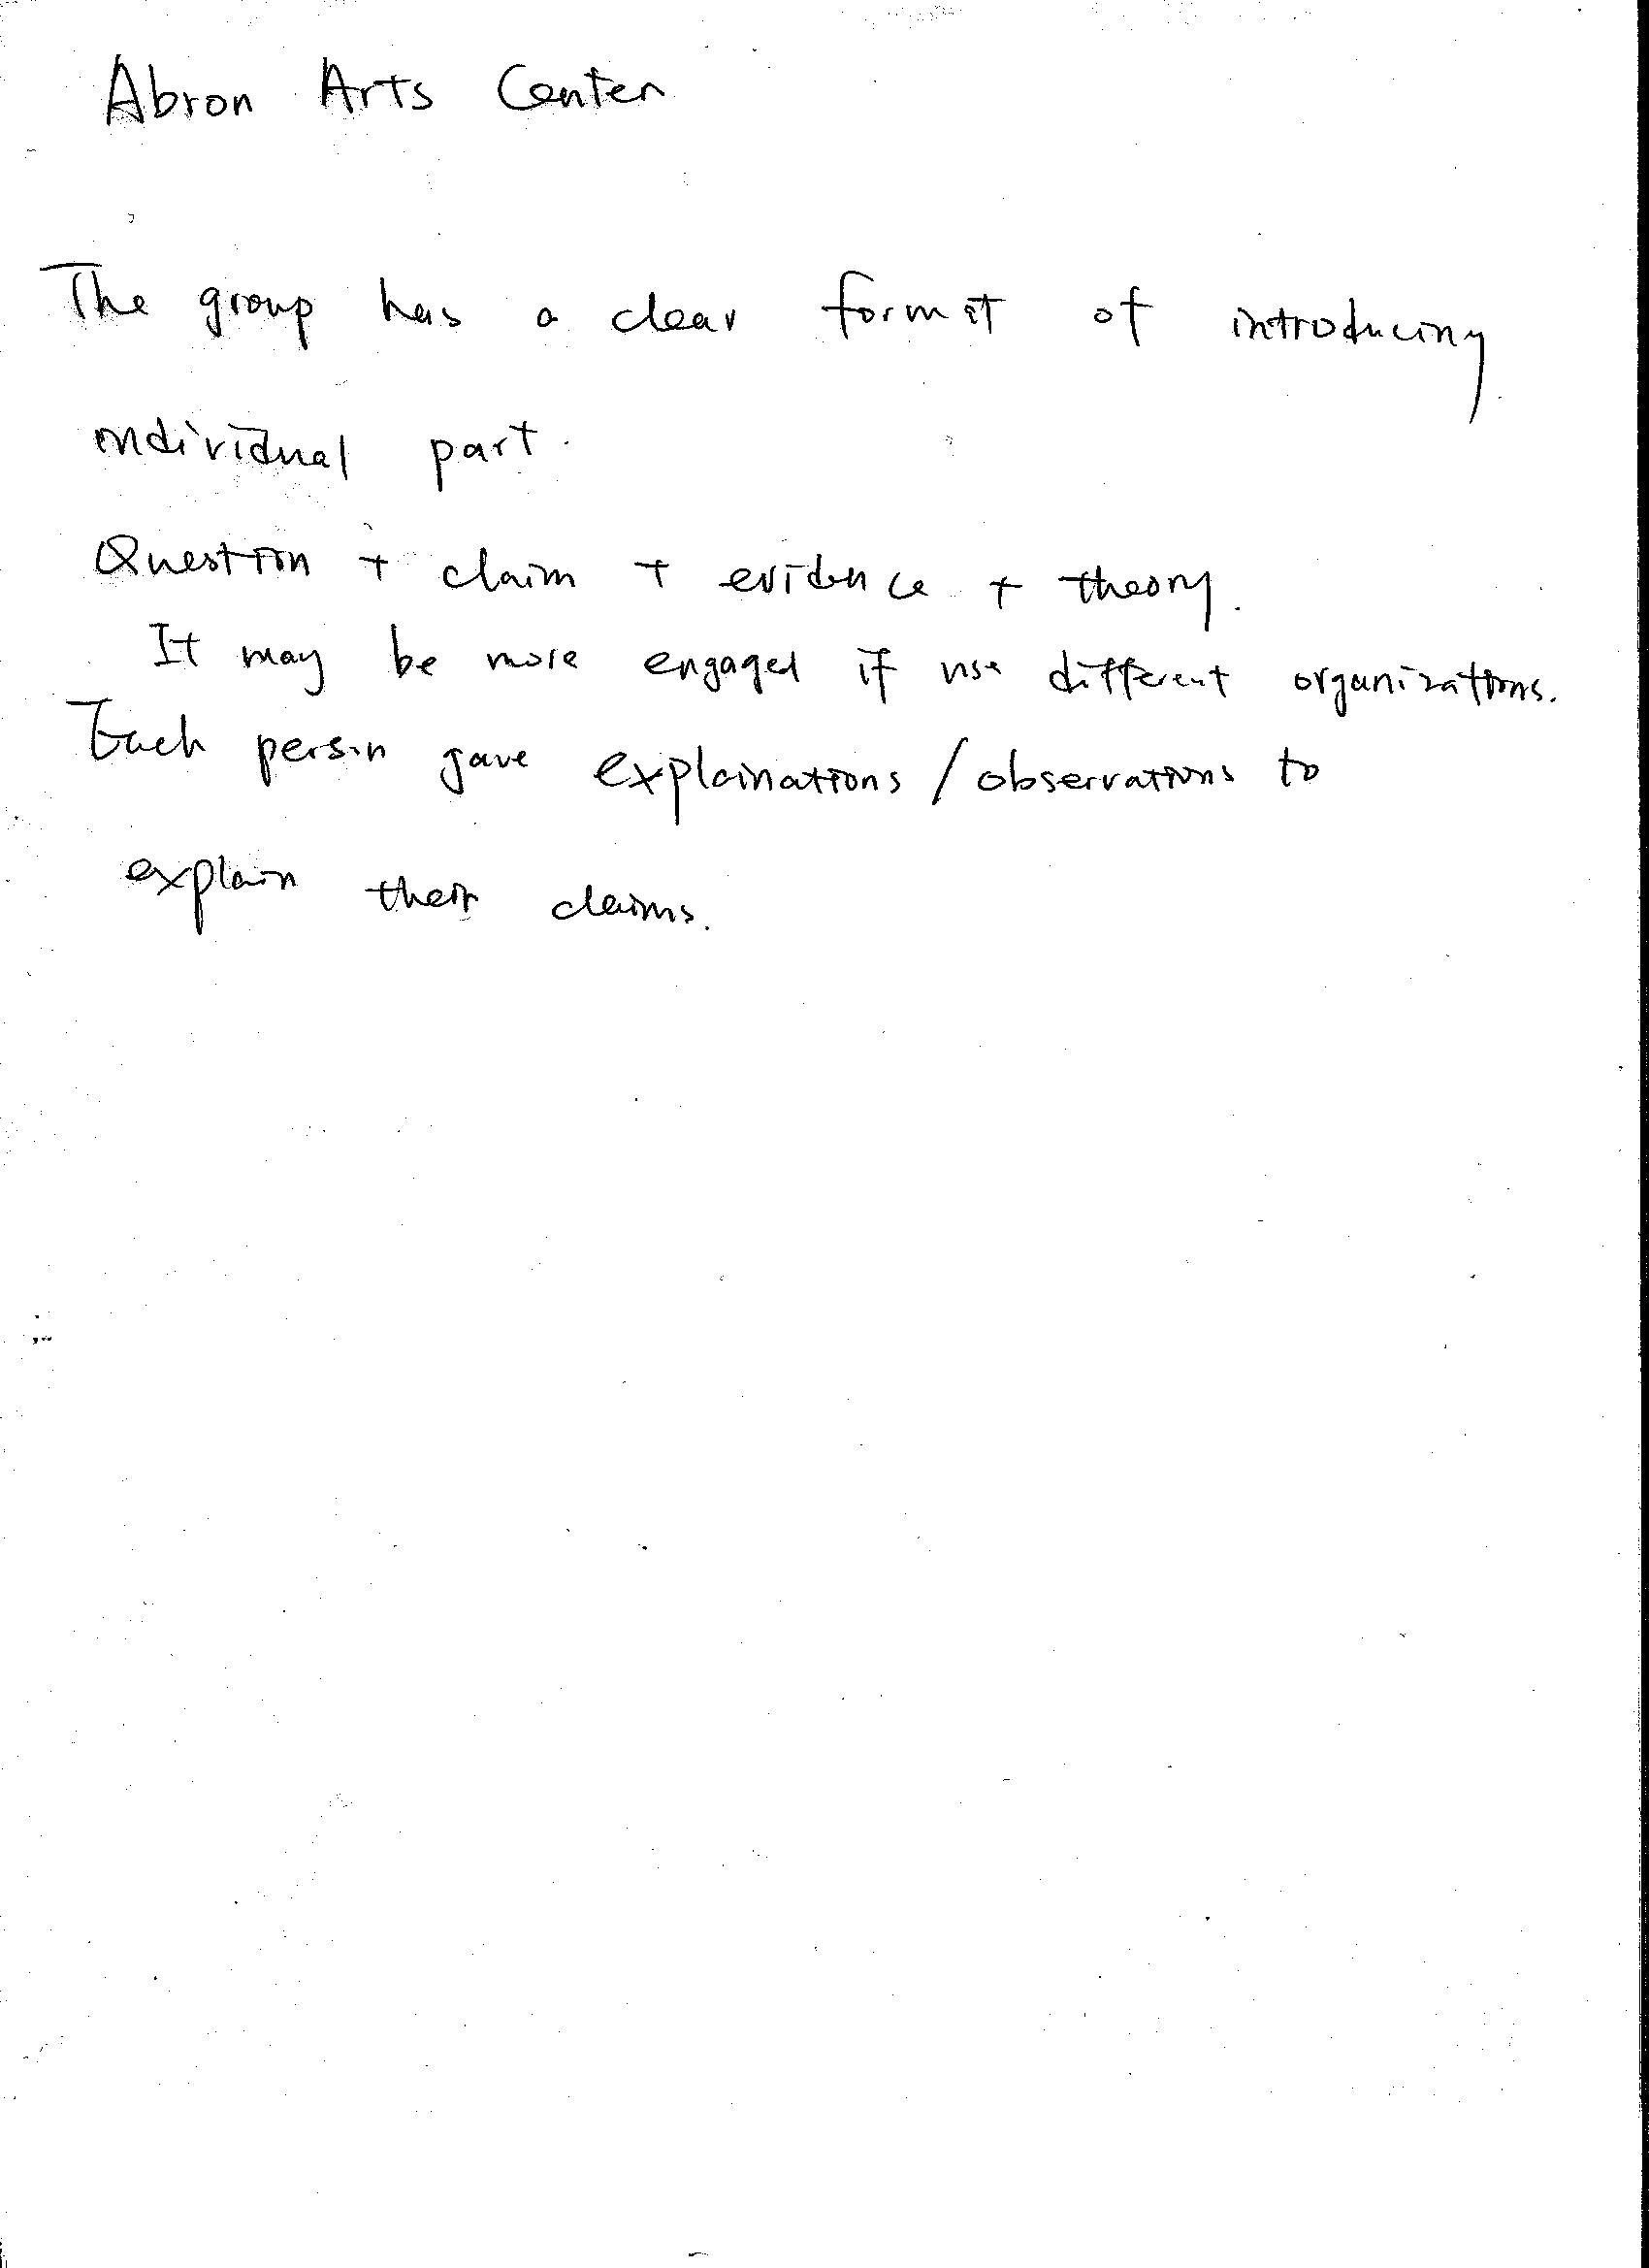 Abron Arts Center
The group has a clear format of introducing
individual part.
Question + claim + evidence + theory.
It may be more engaged if use different organizations.
Each person gave explainations / observations to
explain their claims.